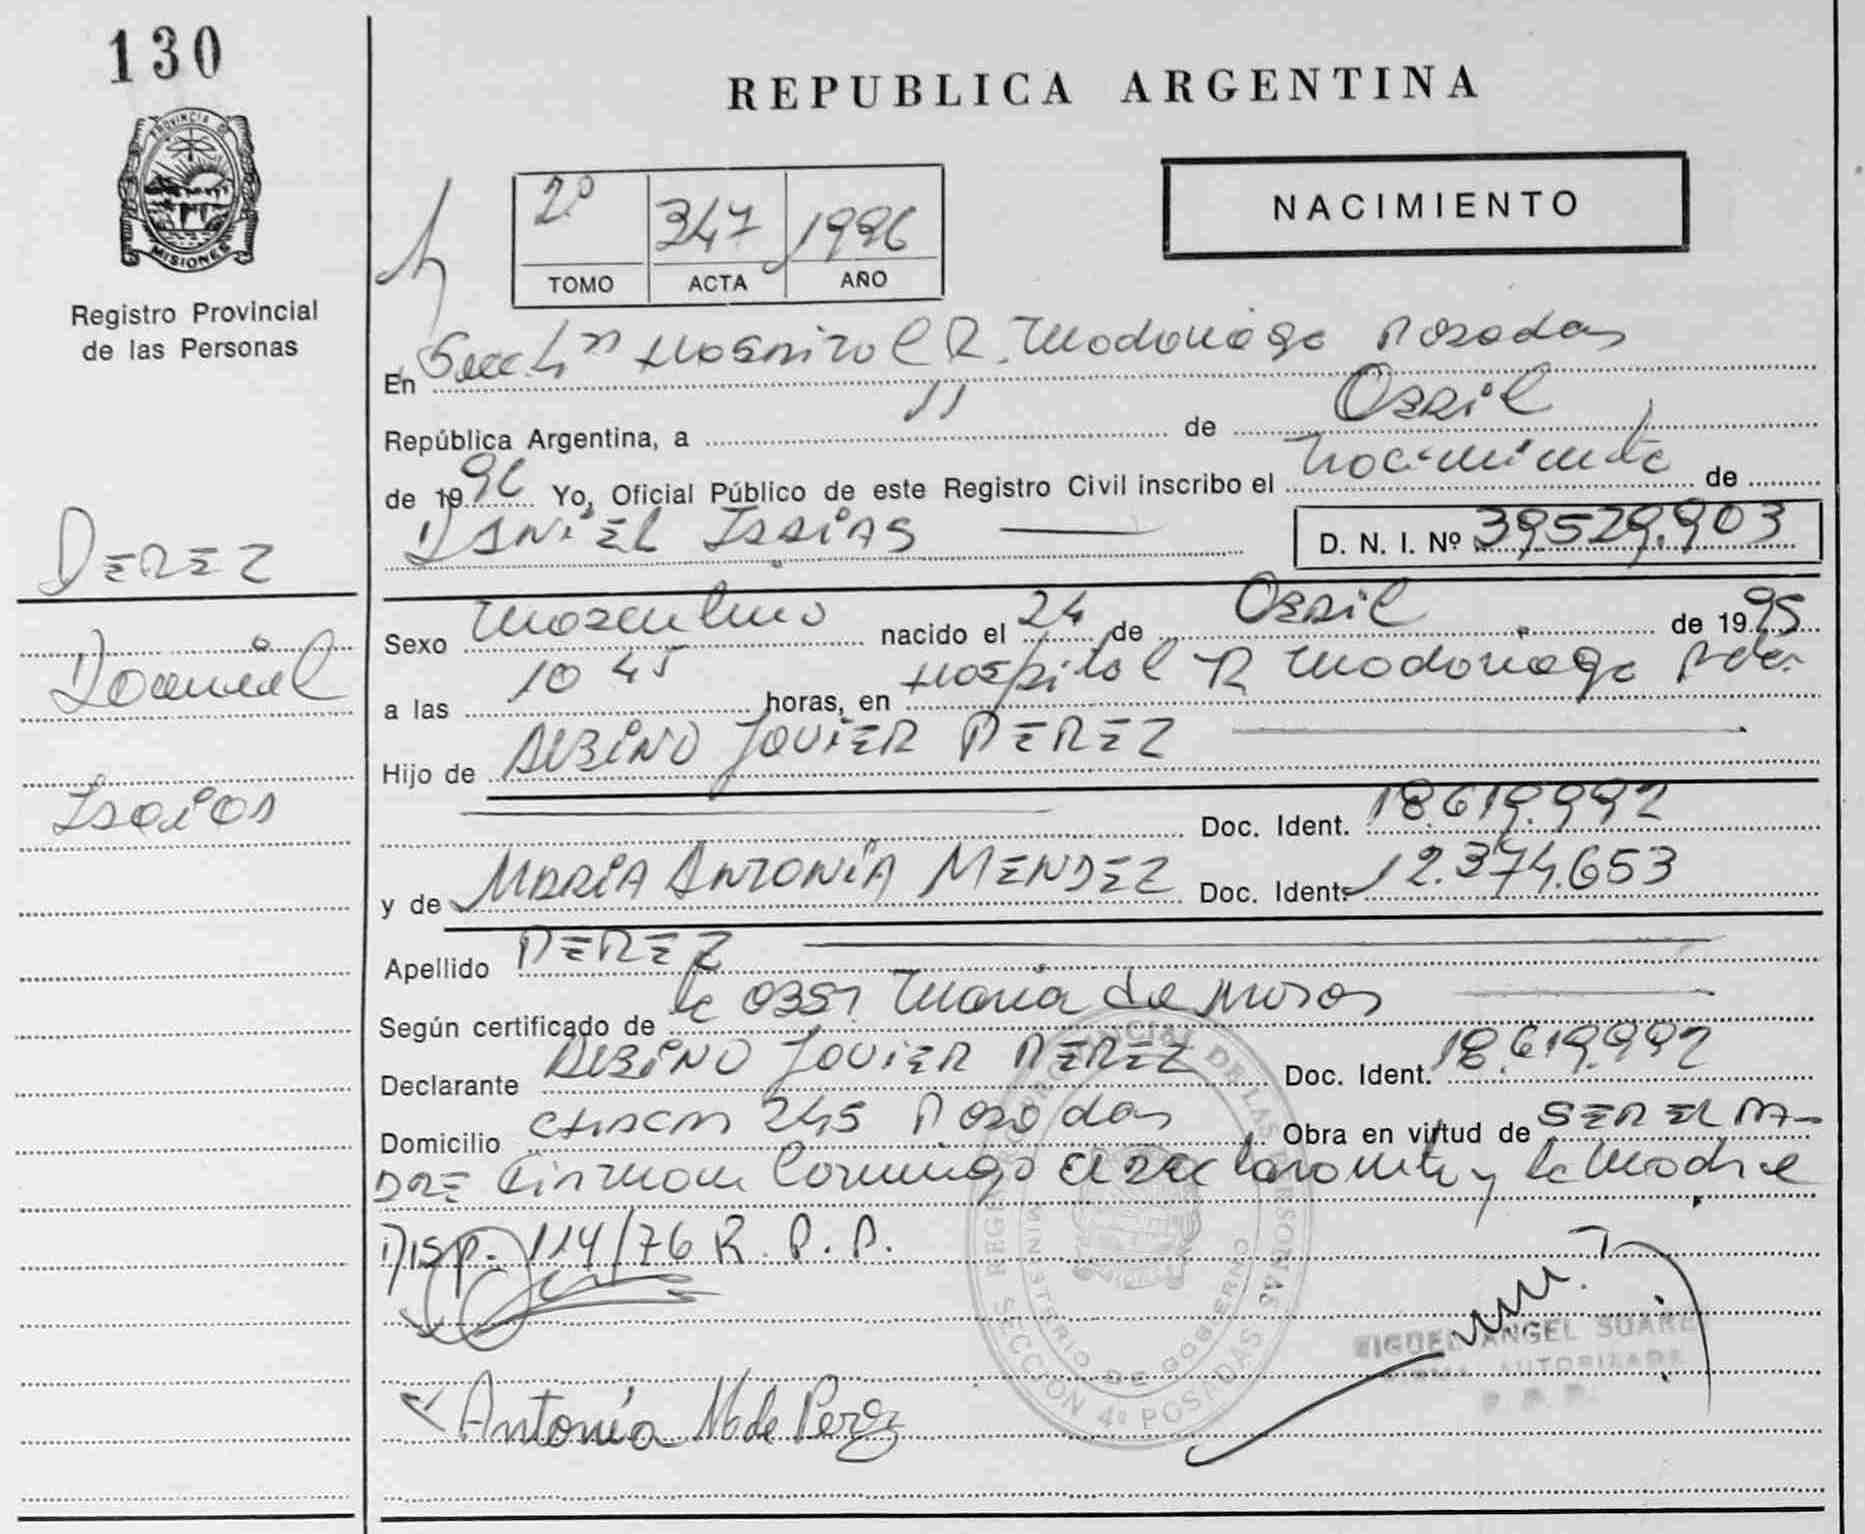 130
REPUBLICA ARGENTINA
PROVINCIA DE
MISIONES
Registro Provincial
de las Personas
2º 347 1996
TOMO ACTA AÑO
NACIMIENTO
En Secc 4ta Hospital R. Madariaga Posadas
República Argentina, a 11 de Abril
de 1996 Yo, Oficial Público de este Registro Civil inscribo el nacimiento de
DANIEL ISAIAS D. N. I. Nº 39.529.903
PEREZ
Daniel
Isaias
Sexo masculino nacido el 24 de Abril de 1995
a las 10 45 horas, en Hospital R Madariaga Pdas.
Hijo de ALBINO JAVIER PEREZ
Doc. Ident. 18.619.992
y de MARIA ANTONIA MENDEZ Doc. Ident. 12.374.653
Apellido PEREZ
Según certificado de la Obst. Maria de
Declarante ALBINO JAVIER PEREZ Doc. Ident. 18.619.992
Domicilio CHACRA 245 Posadas Obra en virtud de SER EL PA-
DRE Firman Conmigo El Declarante y la Madre
Disp. 114/76 R. P. P.
REGISTRO PROVINCIAL DE LAS PERSONAS
MINISTERIO DE GOBIERNO
SECCION 4º POSADAS
MIGUEL ANGEL SUAREZ
FIRMA AUTORIZADA
R. P. P.
Antonia M de Perez